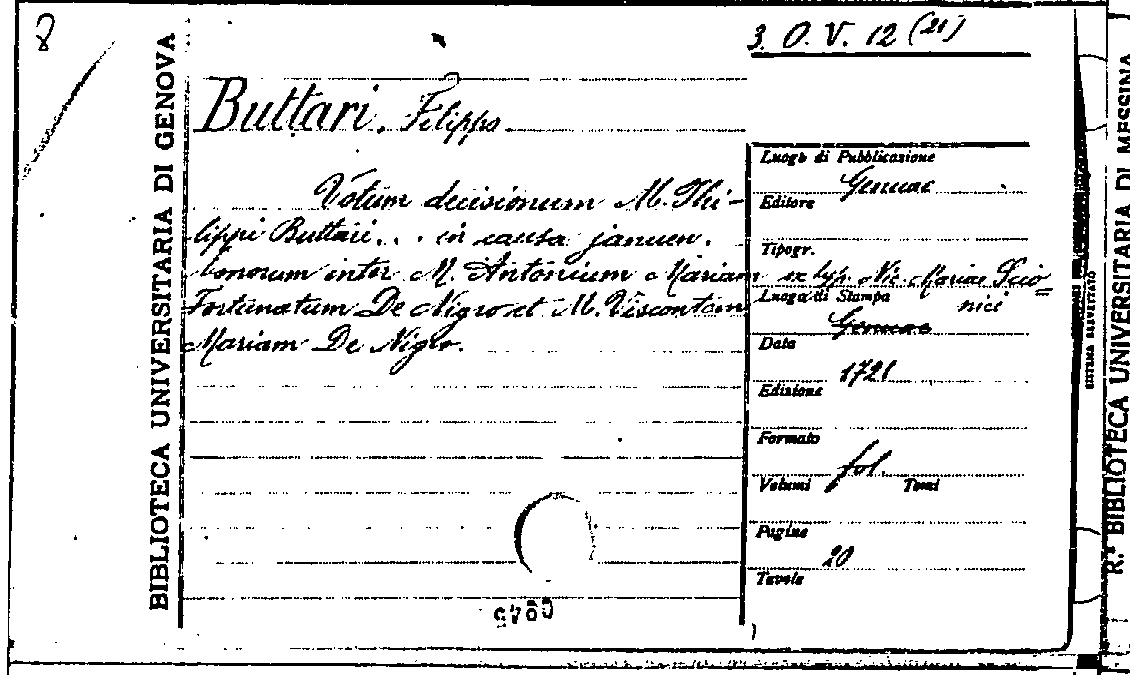 8
3. O. V. 12 (21)
BIBLIOTECA UNIVERSITARIA DI GENOVA
Buttari, Filippo
Votum decisionum M. Phi-
lippi Buttari... in causa januen.
bonorum inter M. Antonium Mariam
Fortunatum De Nigro et M. Viscontem
Mariam De Nigro.
Luogo di Pubblicazione
Genuae
Editore
Tipogr.
ex typ. Nic. Mariae Scio=
nici
Luogo di Stampa
Genuae
Data
1721
Edizione
Formato
fol.
Volumi Tomi
Pagine
20
Tavole
SISTEMA BREVETTATO
R.ª BIBLIOTECA UNIVERSITARIA DI MESSINA